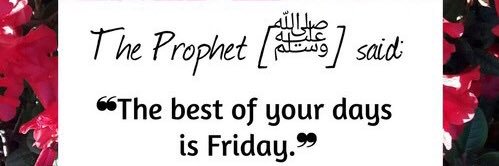 The Prophet [ﷺ] said:
❝The best of your days
is Friday.❞